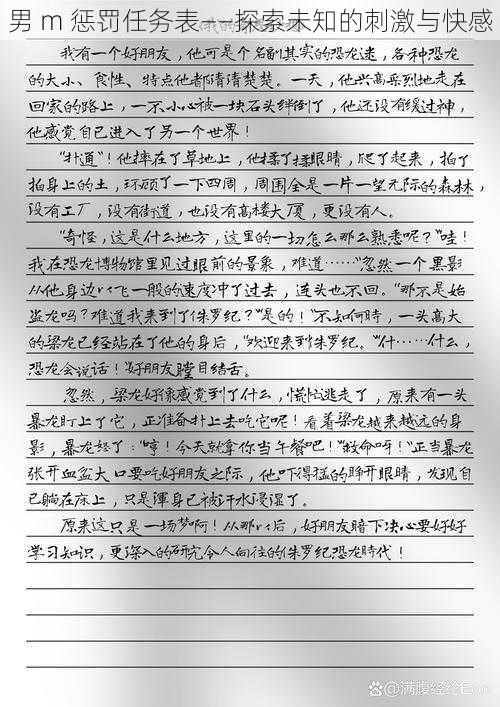 男 m 惩罚任务表——探索未知的刺激与快感
我有一个好朋友，他可是个名副其实的恐龙迷，各种恐龙
的大小、食性、特点他都清清楚楚。一天，他兴高采烈地走在
回家的路上，一不小心被一块石头绊倒了，他还没有缓过神，
他感觉自己进入了另一个世界！
“扑通”！他摔在了草地上，他揉了揉眼睛，爬了起来，拍了
拍身上的土，环顾了一下四周，周围全是一片一望无际的森林，
没有工厂，没有街道，也没有高楼大厦，更没有人。
“奇怪，这是什么地方，这里的一切怎么那么熟悉呢？”哇！
我在恐龙博物馆里见过眼前的景象，难道……”忽然一个黑影
从他身边以飞一般的速度冲了过去，连头也不回。“那不是始
盗龙吗？难道我来到了侏罗纪？”“是的！”不知何時，一头高大
的梁龙已经站在了他的身后，“欢迎来到侏罗纪。”“什……什么，
恐龙会说话！”好朋友瞠目结舌。
忽然，梁龙好像感觉到了什么，慌忙逃走了，原来有一头
暴龙盯上了它，正准备扑上去吃它呢！看着梁龙越来越远的身
影，暴龙怒了：“哼！今天就拿你当午餐吧！”“救命呀！”正当暴龙
张开血盆大口要吃好朋友之际，他吓得猛的睁开眼睛，发现自
己躺在床上，只是渾身已被汗水浸湿了。
原来这只是一场梦啊！从那以后，好朋友暗下决心要好好
学习知识，更深入的研究令人向往的侏罗纪恐龙時代！
知乎 @满腹经纶